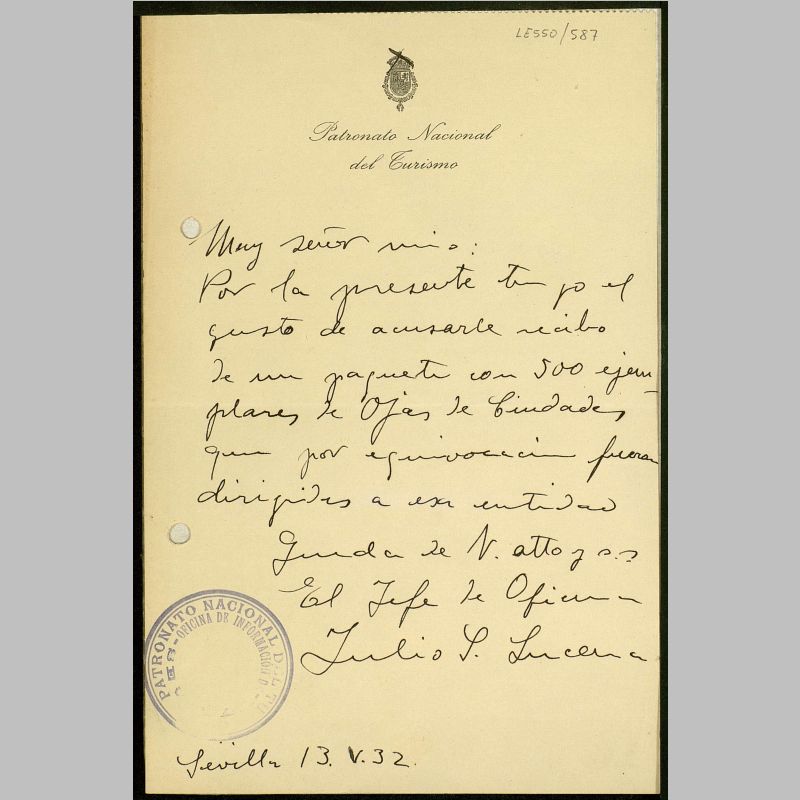 LE550/587
Patronato Nacional
del Turismo
Muy señor mio:
Por la presente tengo el
gusto de acusarle recibo
de un paquete con 500 ejem-
plares de Ojas de Ciudades
que por equivocacion fueron
dirigidas a esa entidad
Queda de V. atto y s.s
El Jefe de Oficina
Julio S. Lucena
PATRONATO NACIONAL DEL TU
OFICINA DE INFORMACIÓN D
Sevilla 13.V.32.